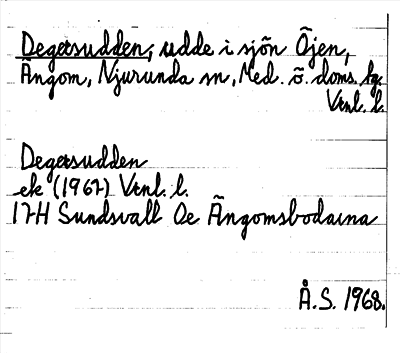 Degersudden, udde i sjön Öjen,
Ängom, Njurunda sn, Med. ö. doms. tg.
Vrnl. l.
Degersudden
ek (1967) Vrnl. l.
17H Sundsvall Oe Ängomsbodarna
Å.S. 1968.